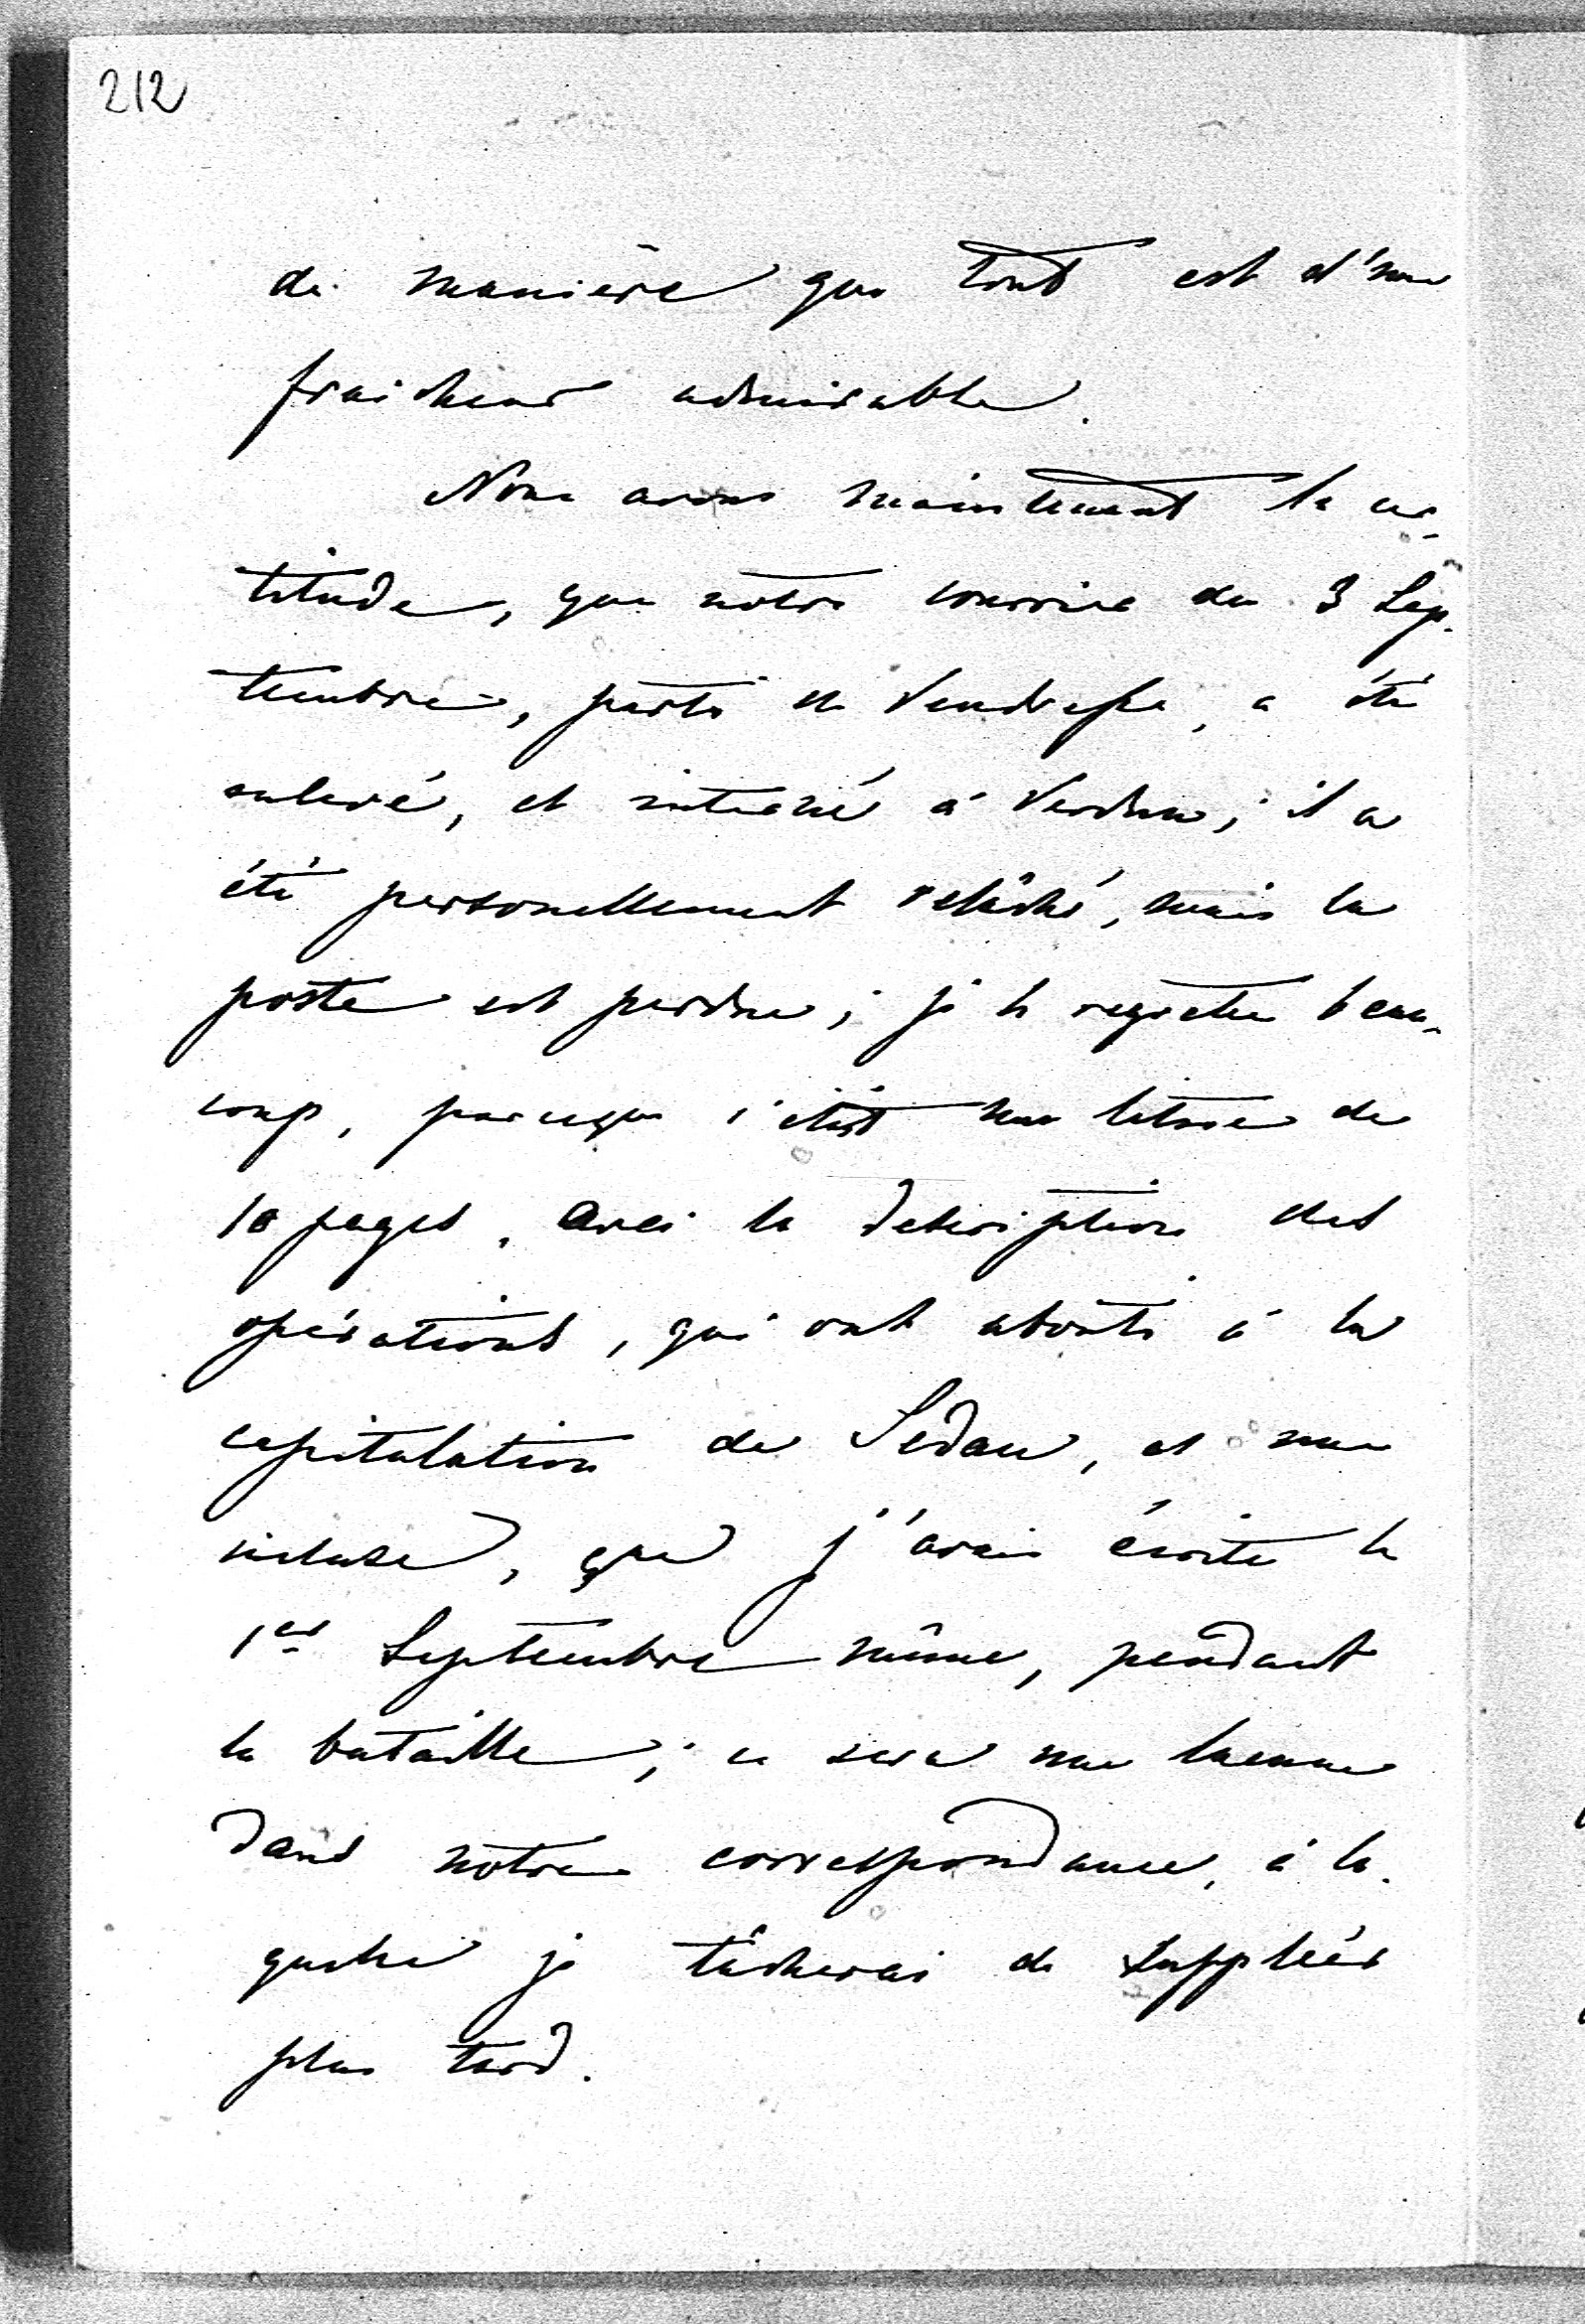 212
de manière que tout est d'une
fraicheur admirable.
Nous avons maintenant la cer-
titude, que notre courrier du 3 Sep-
tembre, parti de Vendresse, a été
enlevé, et interné à Verdun; il a
été personellement relâché, mais la
poste est perdue; je le regrette beau-
coup, parceque c'était une lettre de
10 pages, avec la description des
opérations, qui ont abouti à la
capitulation de Sédan, et une
incluse, que j'avais écrite le
1er Septembre même, pendant
la bataille; ce sera une lacune
dans notre correspondance, à la-
quelle je tâcherai de suppléer
plus tard.